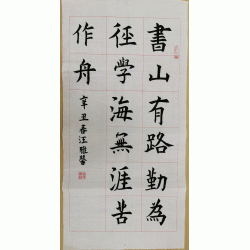 書山有路勤為
徑學海無涯苦
作舟
辛丑春汪雅馨